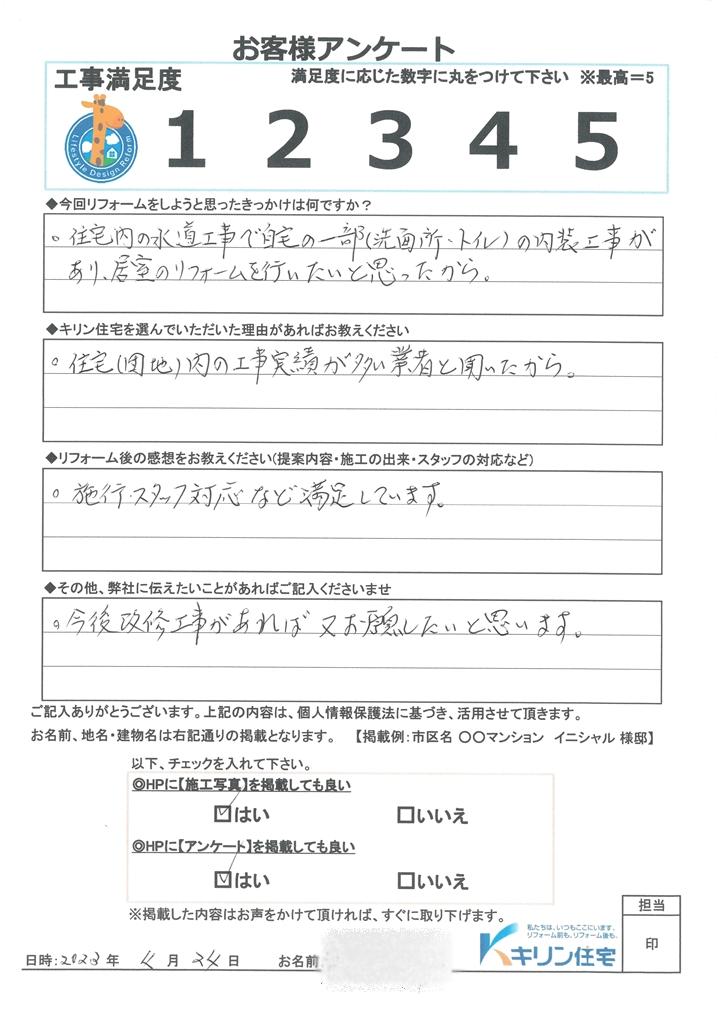 お客様アンケート
工事満足度
満足度に応じた数字に丸をつけて下さい ※最高=5
Lifestyle Design Reform
1 2 3 4 5
◆今回リフォームをしようと思ったきっかけは何ですか?
。住宅内の水道工事で自宅の一部(洗面所・トイレ)の内装工事が
あり、居室のリフォームを行いたいと思ったから。
◆キリン住宅を選んでいただいた理由があればお教えください
。住宅(団地)内の工事実績が多い業者と聞いたから。
◆リフォーム後の感想をお教えください(提案内容・施工の出来・スタッフの対応など)
。施行・スタッフ対応など満足しています。
◆その他、弊社に伝えたいことがあればご記入くださいませ
。今後改修工事があれば又お願したいと思います。
ご記入ありがとうございます。上記の内容は、個人情報保護法に基づき、活用させて頂きます。
お名前、地名・建物名は右記通りの掲載となります。 【掲載例:市区名 〇〇マンション イニシャル 様邸】
以下、チェックを入れて下さい。
◎HPに【施工写真】を掲載しても良い
☑はい □いいえ
◎HPに【アンケート】を掲載しても良い
☑はい □いいえ
※掲載した内容はお声をかけて頂ければ、すぐに取り下げます。
担当
印
私たちは、いつもここにいます。
リフォーム前も、リフォーム後も。
キリン住宅
日時:2023年 4月 24日 お名前